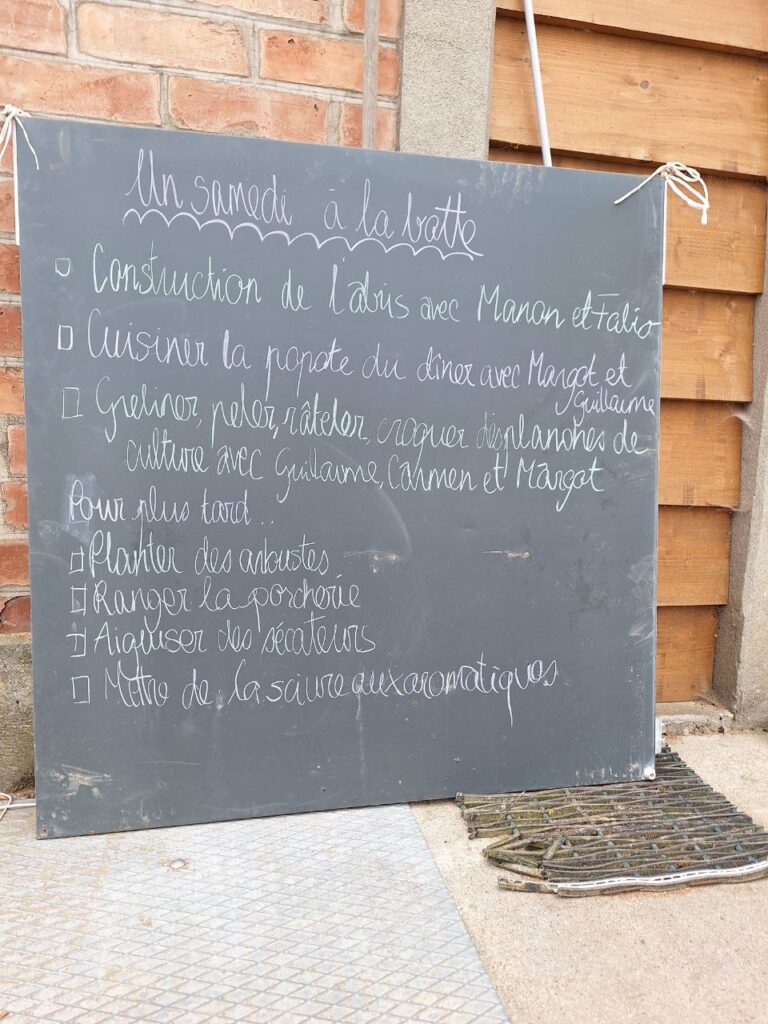 Un samedi à la batte
Construction de l'abris avec Manon et Fabio
Cuisiner la popote du dîner avec Margot et
Guillaume
Greliner, peler, râteler, croquer des planches de
culture avec Guillaume, Carmen et Margot
Pour plus tard..
Planter des arbustes
Ranger la porcherie
Aiguiser des sécateurs
Mettre de la sciure aux aromatiques